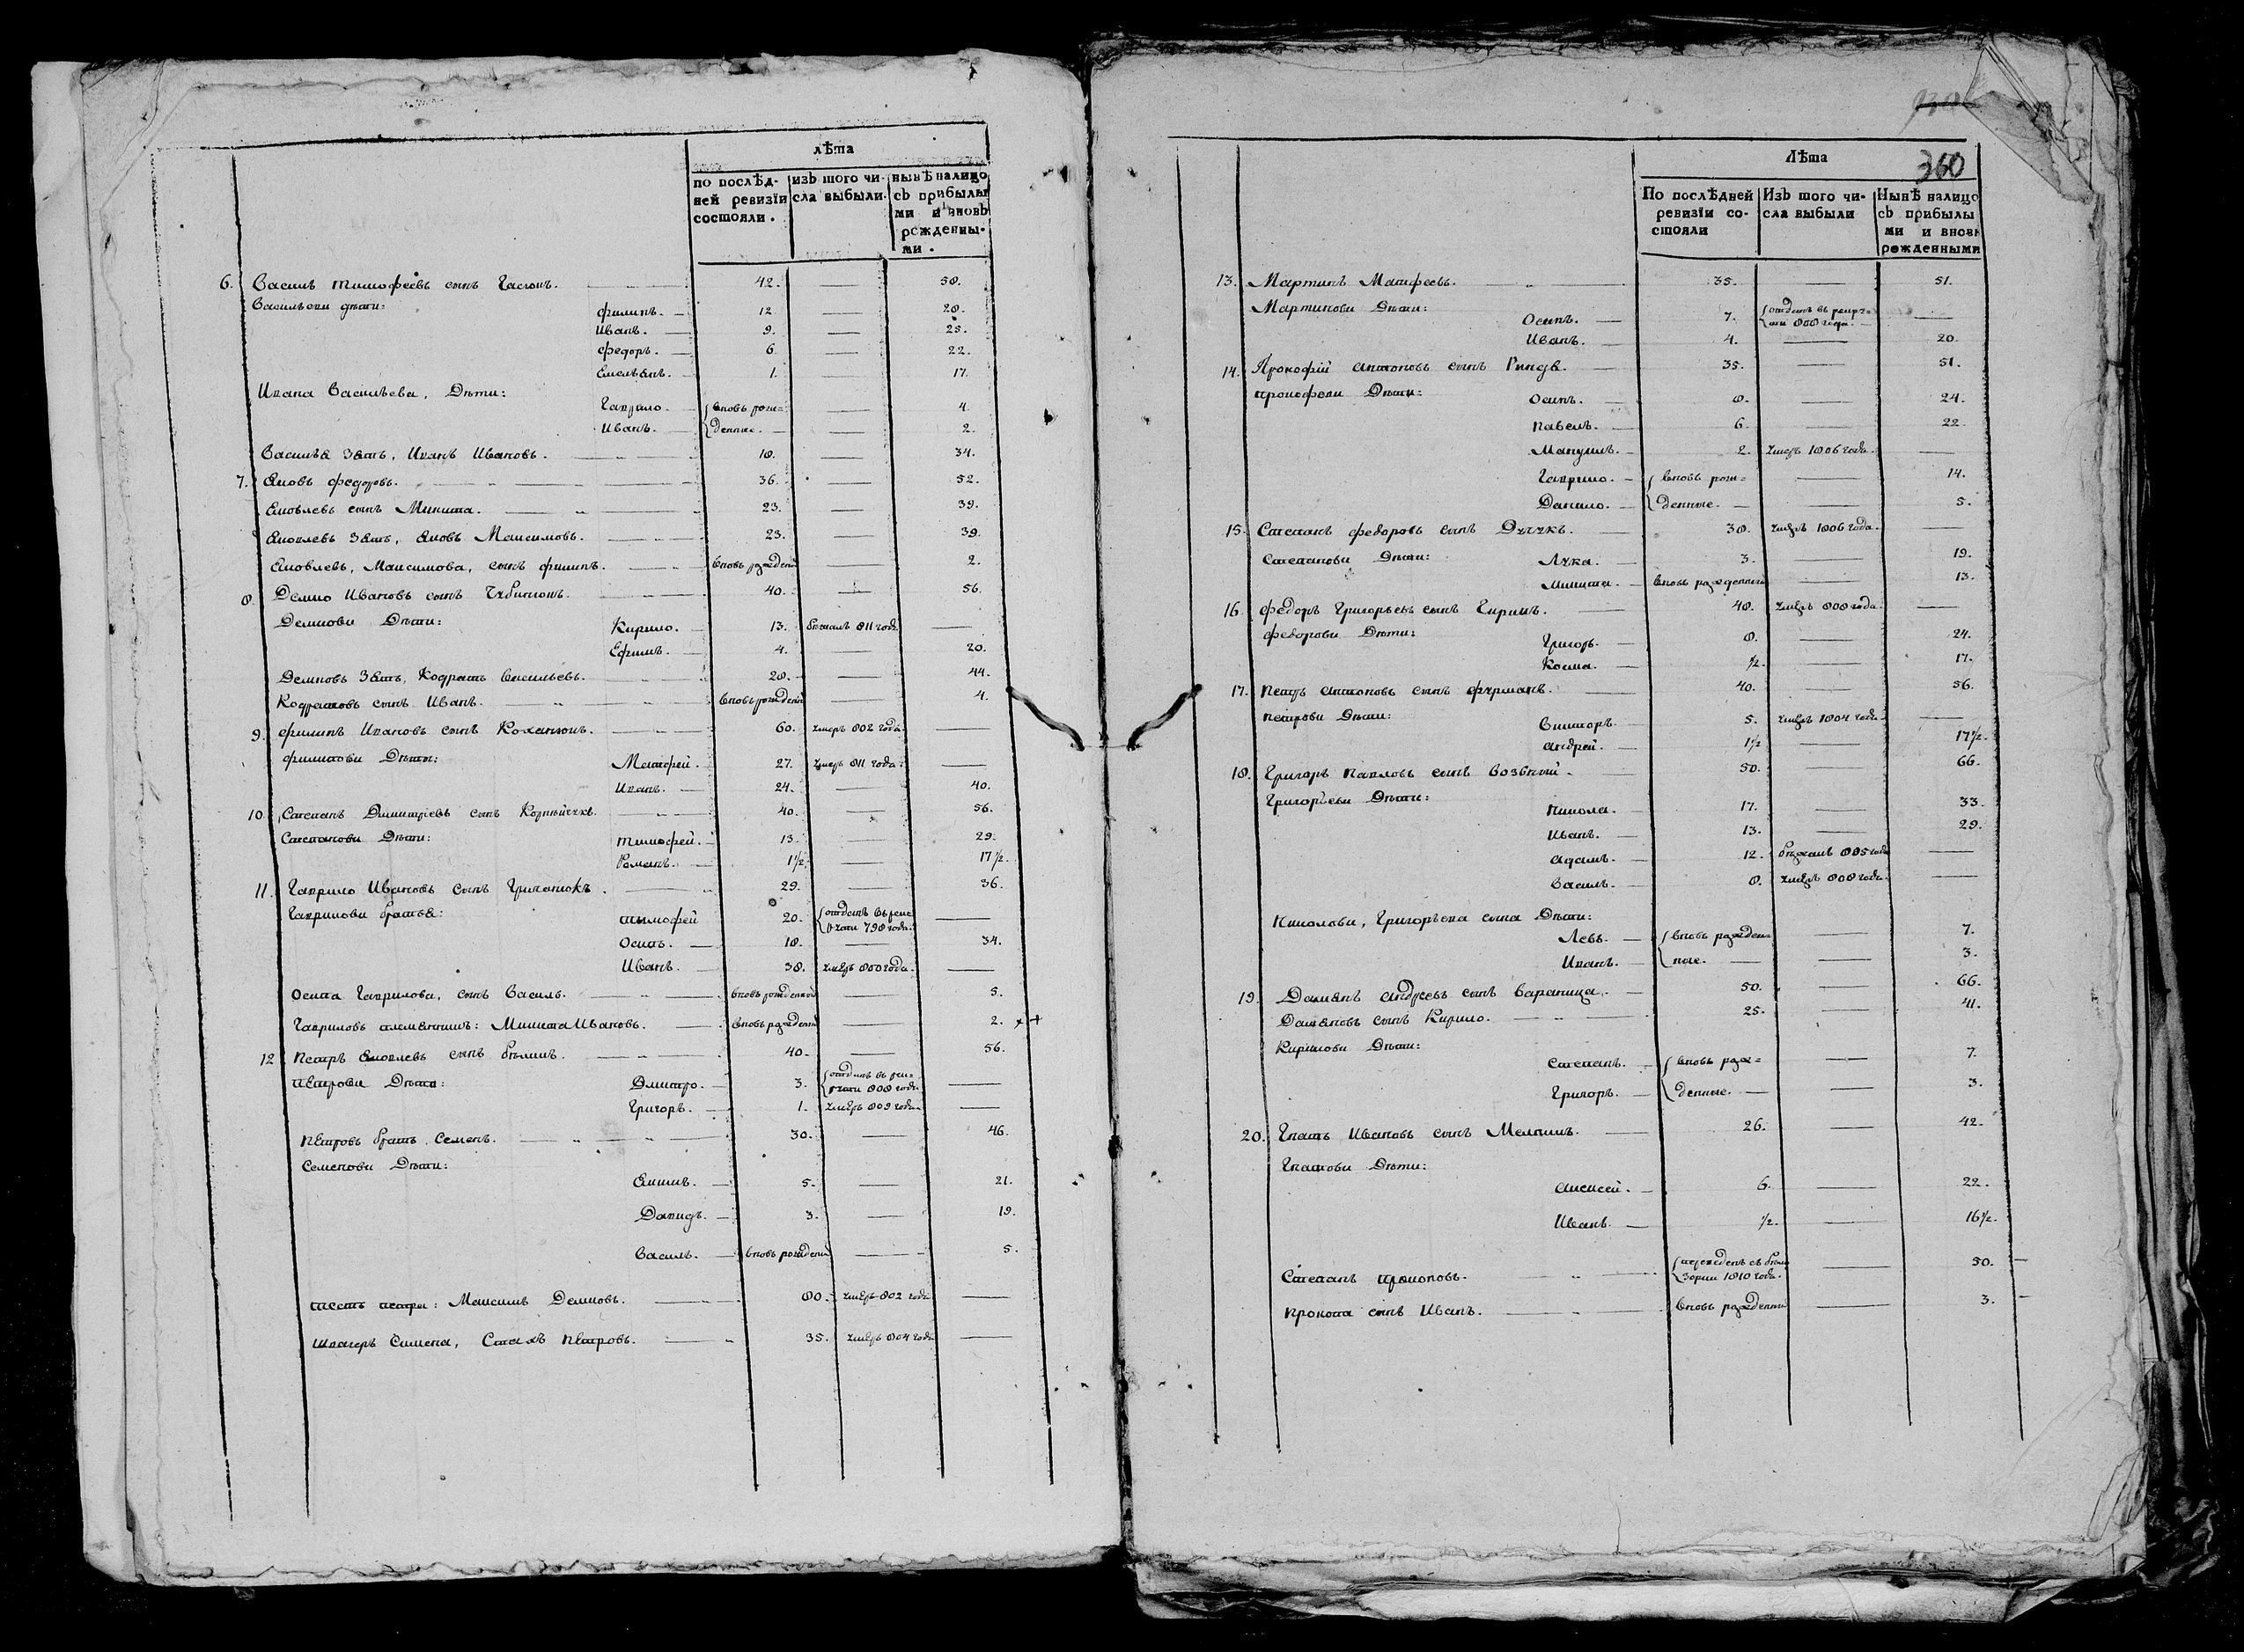 лѣта
по послѣд- изъ того чи- нынѣ налицо
ней ревизїи сла выбыли. съ прибылы
состояли. ми и вновь
рожденны-
ми.
6. Василь Тимофеевъ сынъ 42. — 58.
Васильови дѣти:
Филипъ. — 12 — 28.
Иванъ. — 9. — 25.
Федоръ. — 6. — 22.
Емельянъ. — 1. — 17.
Ивана Васильева, Дѣти:
Гаврило. — вновь рож= — 4.
Иванъ. — денные. — — 2.
Васильѣ Зять, Иванъ Ивановъ. 18. — 34.
7. Яковъ Федоровъ. 36. — 52.
Яковлевъ сынъ Микита. 23. — 39.
Яковлевъ Зять, Яковъ Максимовъ. 23. — 39.
Яковлевъ, Максимова, сынъ Филипъ. вновь рожден — 2.
8. Демко Ивановъ сынъ 40. — 56.
Демкови Дѣти:
Кирило. — 13. бѣжалъ 811 года —
Ефимъ. — 4. — 20.
Демковъ Зять, Кодратъ Васильевъ. 28. — 44.
Кодратовъ сынъ Иванъ. вновь рожден — 4.
9. Филипъ Ивановъ сынъ Коханюкъ. 60. умеръ 802 года —
Филипови Дѣти:
Матфей. — 27. умеръ 811 года. —
Иванъ. — 24. — 40.
10. Степанъ Дмитрїевъ сынъ Корнѣйчукъ. 40. — 56.
Степанови Дѣти:
Тимофей. — 13. — 29.
Романъ. — 1½. — 17½.
11. Гаврило Ивановъ сынъ 29. — 36.
Гаврилови братья:
Тымофей 20. отданъ въ рек
рути 798 года. —
Осипъ. — 18. — 34.
Иванъ. — 38. умеръ 800 года. —
Осипа Гаврилова, сынъ Василь. вновь рожденной — 5.
Гавриловъ племянникъ: Микита Ивановъ. вновь рожден — 2. x +
12 Петръ Яковлевъ сынъ 40. — 56.
Петрови Дѣти:
Дмитро. — 3. отданъ въ рек=
рути 808 года. —
Григоръ. — 1. умеръ 809 года —
Петровъ братъ Семенъ. 30. — 46.
Семенови Дѣти:
Якимъ. — 5. — 21.
Давидъ. — 3. — 19.
Василь. — вновь рожден — 5.
Тесть Петра: Максимъ Демковъ. 80. умеръ 802 года —
Швагеръ Симена, Петровъ. 35. умеръ 804 года —
360
Лѣта
По послѣдней Изъ того чи- Нынѣ налицо
ревизїи со- сла выбыли съ прибылы
стояли ми и вновь
рожденными
13. Мартинъ Матфеевъ. 35. — 51.
Мартинови Дѣти:
Осипъ. — 7. отданъ въ рекру=
ти 808 года. —
Иванъ. — 4. — 20.
14. Прокофїй Антоновъ сынъ 35. — 51.
Прокофови Дѣти:
Осипъ. — 8. — 24.
Павелъ. — 6. — 22.
2. умеръ 1806 года. —
Гаврило. — вновь рож= — 14.
Данило. — денные. — — 5.
15. Степанъ Федоровъ сынъ 38. умеръ 1806 года. —
Степанови Дѣти:
Лука. — 3. — 19.
Микита. — вновь рожденной — 13.
16. Федоръ Григорьевъ сынъ 48. умеръ 808 года. —
Федорови Дѣти:
Григоръ. — 8. — 24.
Косма. — ½. — 17.
17. Петръ Антоновъ сынъ Фурманъ. 40. — 56.
Петрови Дѣти:
Викторъ. 5. умеръ 1804 года —
Андрей. — 1½ — 17½.
18. Григоръ Павловъ сынъ Возьный. 50. — 66.
Григорьеви Дѣти:
Никола. — 17. — 33.
Иванъ. — 13. — 29.
Адамъ. — 12. бѣжалъ 805 года —
Василь. — 8. умеръ 808 года. —
Николови, Григорьева сына Дѣти:
Левъ. — вновь рожден= — 7.
Иванъ. — ные. — — 3.
19. Дамянъ Андреевъ сынъ Вараница. 50. — 66.
Дамяновъ сынъ Кирило. 25. — 41.
Кирилови Дѣти:
Степанъ. — вновь рож= — 7.
Григоръ. — денные. — — 3.
20. Гнатъ Ивановъ сынъ Мельникъ. 26. — 42.
Гнатови Дѣти:
Алексей. — 6. — 22.
Иванъ. — ½. — 16½.
Степанъ Прокоповъ. 1810 года. — 50. —
Прокопа сынъ Иванъ. вновь рожденны — 3. —